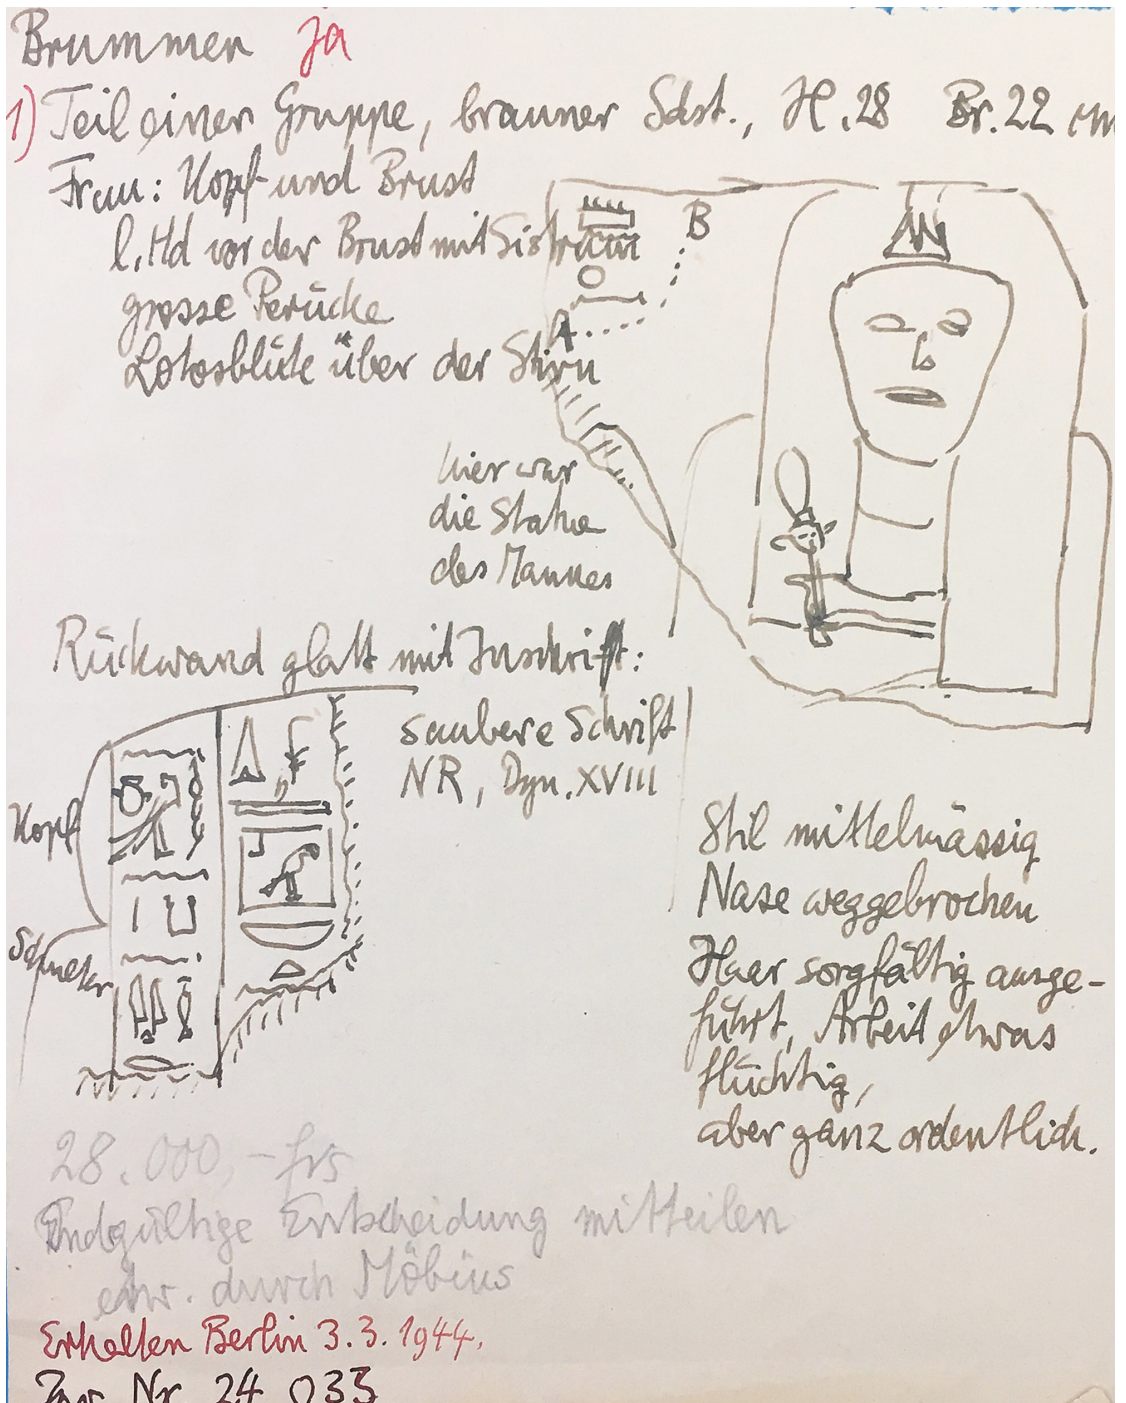 Brummer Ja
1) Teil einer Gruppe, brauner Sdst., H.28 Br.22 cm
Frau: Kopf und Brust
l. Hd vor der Brust mit Sistrum
grosse Perücke
Lotosblüte über der Stirn
B
A
hier war
die Statue
des Mannes
Rückwand glatt mit Inschrift:
saubere Schrift
NR, Dyn. XVIII
Kopf
Schulter
Stil mittelmässig
Nase weggebrochen
Haar sorgfältig ausge-
führt, Arbeit etwas
flüchtig,
aber ganz ordentlich.
28.000,- frs
Endgültige Entscheidung mitteilen
durch Möbius
Erhalten Berlin 3.3.1944.
Inv. Nr. 24 033